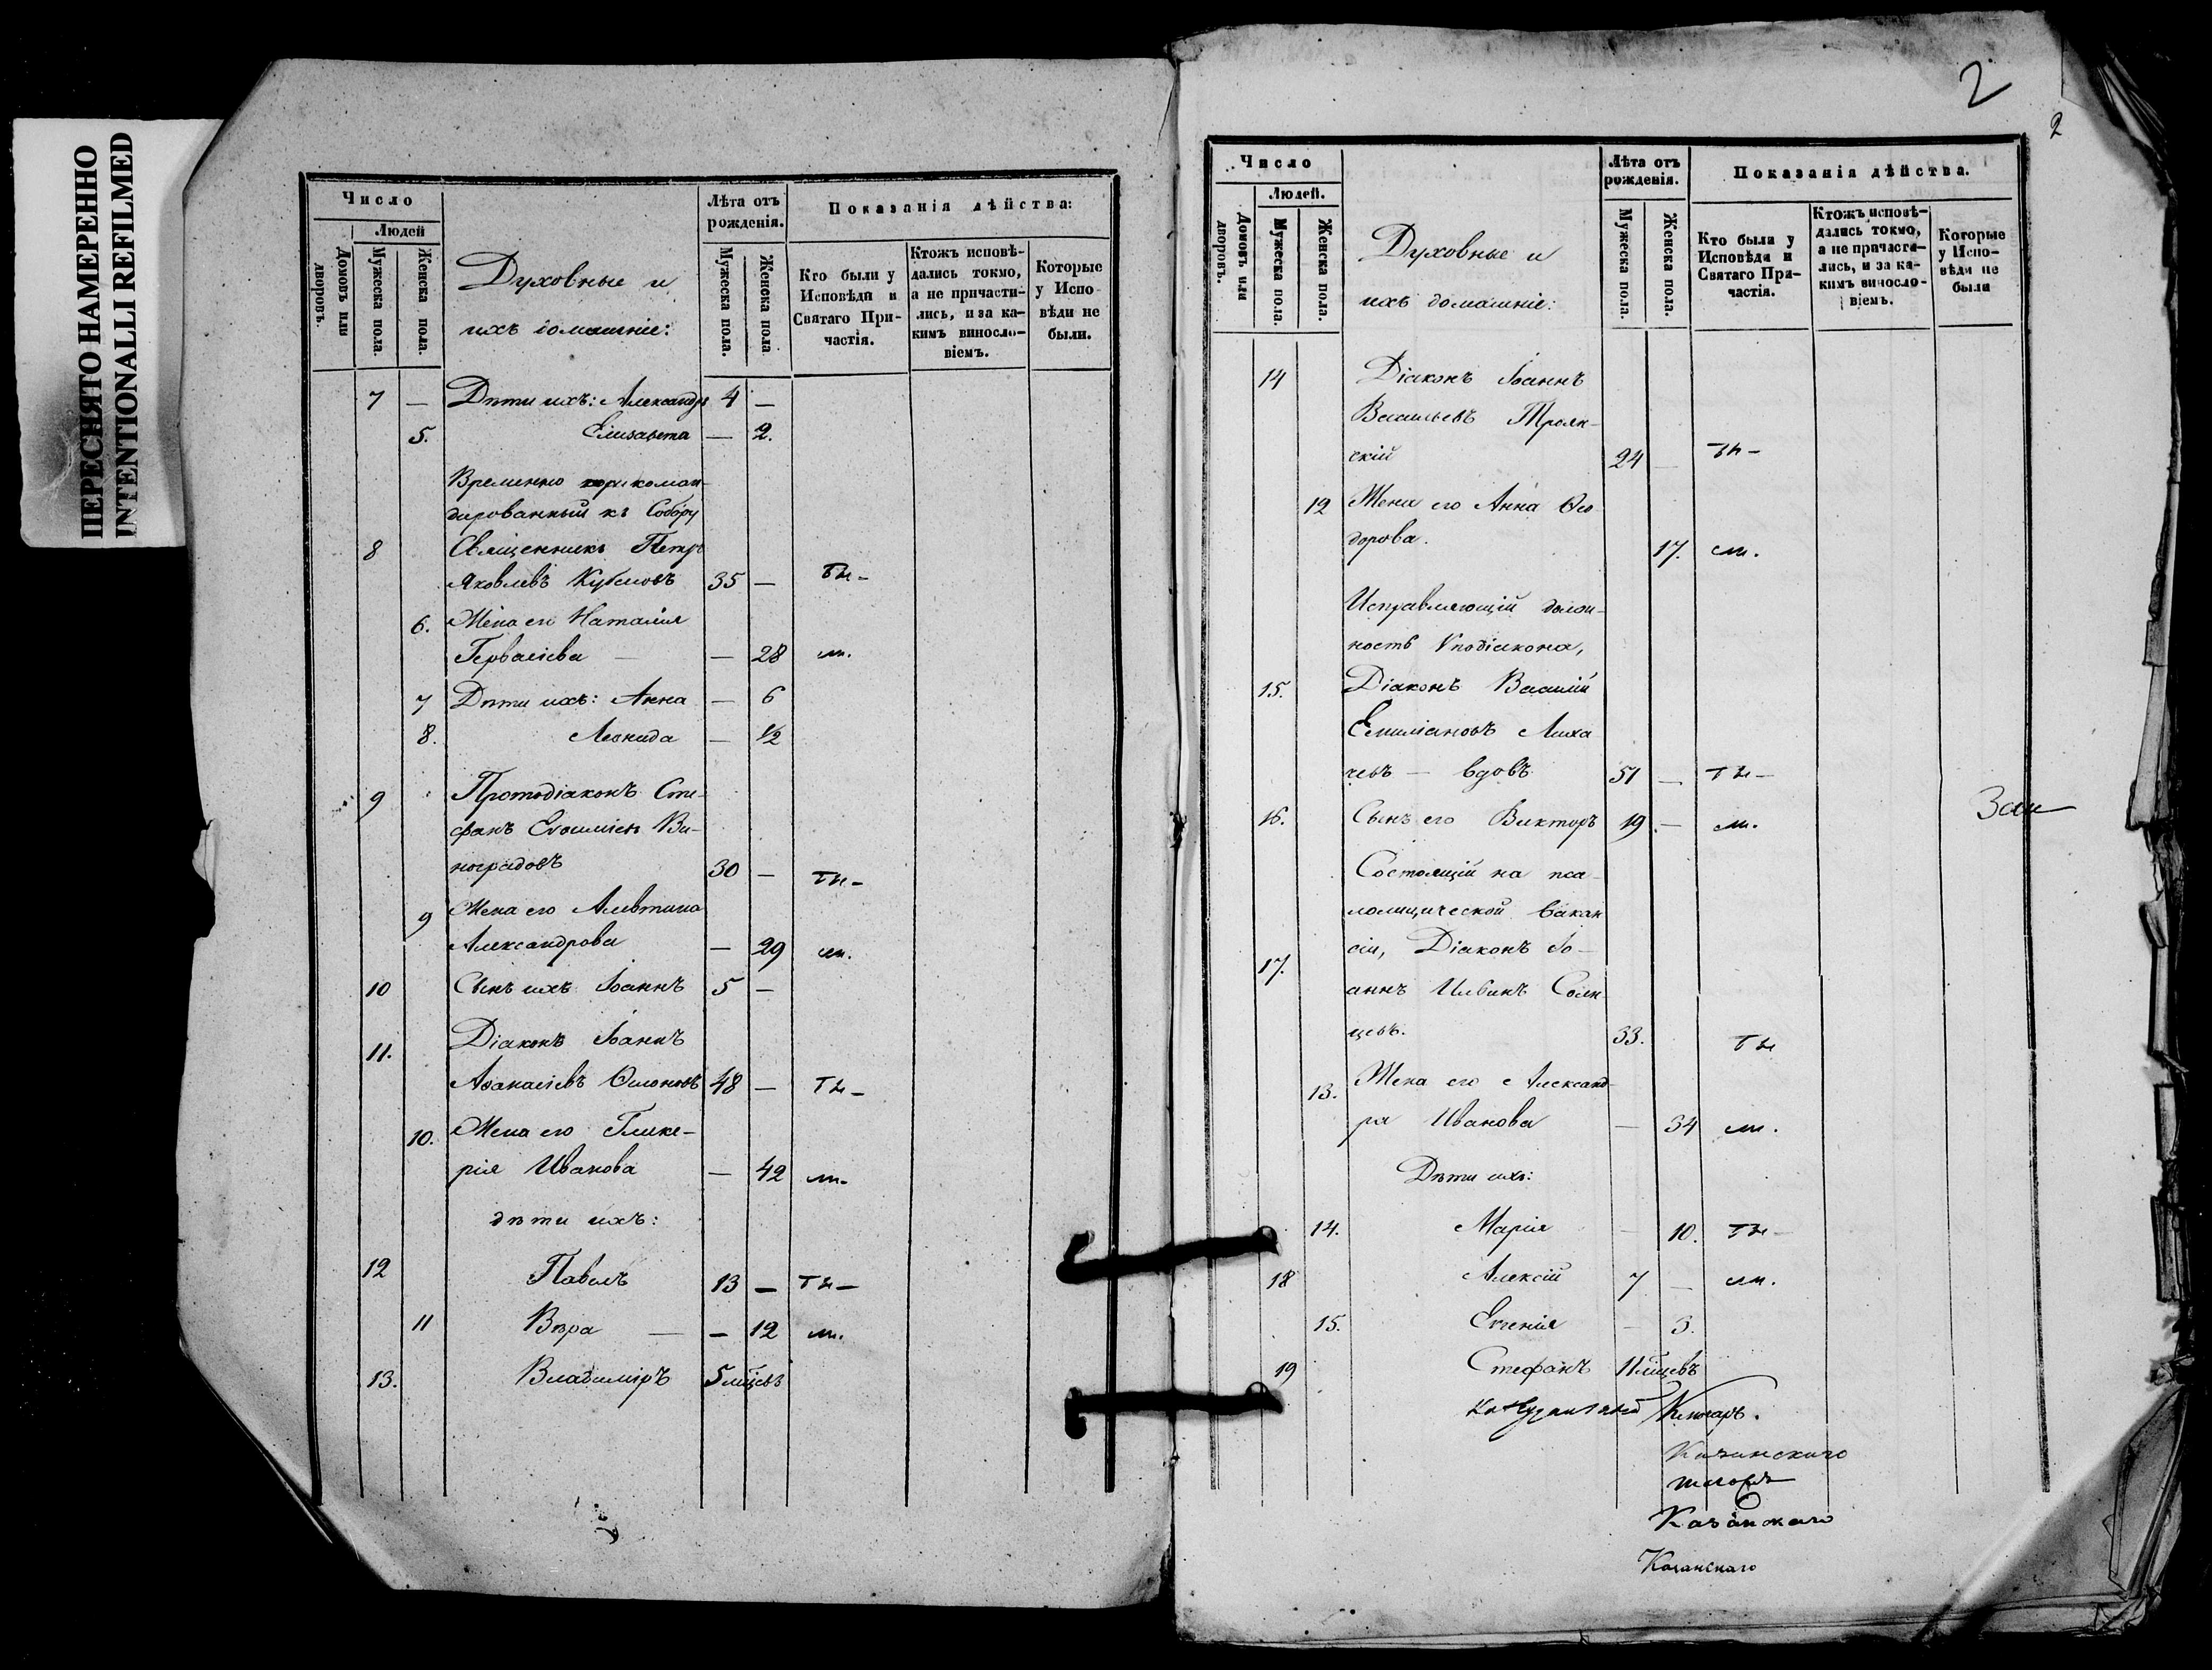 ПЕРЕСНЯТО НАМЕРЕННО
INTENTIONALLI REFILMED
Число
Людей
Домовъ или дворовъ.
Мужеска пола.
Женска пола.
Духовные и
ихъ домашніе:
Лѣта отъ рожденія.
Мужеска пола.
Женска пола
Показанія дѣйства:
Кто были у Исповѣди и Святаго Причастія.
Ктожъ исповѣдались токмо, а не причастились, и за какимъ винословіемъ.
Которые у Исповѣди не были.
7 — Дѣти ихъ: Александръ 4 —
5. Елисавета — 2.
Временно прикоман-
дированный къ Собору
8 Священникъ Петръ
Яковлевъ 35 —
6. Жена его Наталія
Гервасіева — — 28
7 Дѣти ихъ: Анна — 6
8. Леонида — ½
9 Протодіаконъ Сте-
фанъ Ви-
ноградовъ 30 —
9 Жена его Алевтина
Александрова — 29
10 Сынъ ихъ Іоаннъ 5 —
11. Діаконъ Іоаннъ
Аѳанасіевъ 48 —
10. Жена его Глике-
рія Иванова — 42
дѣти ихъ:
12 Павелъ 13 —
11 Вѣра — — 12
13. Владиміръ 5 мѣсцевъ
2
2
Число
Людей.
Домовъ или дворовъ.
Мужеска пола.
Женска пола.
Духовные и
ихъ домашніе:
Лѣта отъ рожденія.
Мужеска пола.
Женска пола.
Показанія дѣйства.
Кто были у Исповѣди и Святаго Причастія.
Ктожъ исповѣдались токмо, а не причастились, и за какимъ винословіемъ.
Которые у Исповѣди не были
14 Діаконъ Іоаннъ
Васильевъ Троян-
скій 24 —
12 Жена его Анна Ѳео-
дорова. 17.
Исправляющій долж-
ность Vподіакона,
15. Діаконъ Василій
Емиліановъ Лиха
чевъ — вдовъ 51 —
16. Сынъ его Викторъ 19 —
Состоящій на пса-
ломщической вакан
сіи, Діаконъ Іо-
17. аннъ Ильинъ Солн
цевъ. 33.
13. Жена его Александ-
ра Иванова — 34
Дѣти ихъ:
14. Марія — 10.
18 Алексій 7 —
15. Евгенія — 3.
19 Стефанъ 11 мѣсцевъ
Ключарь.
Казанскаго
Казанскаго
Казанскаго